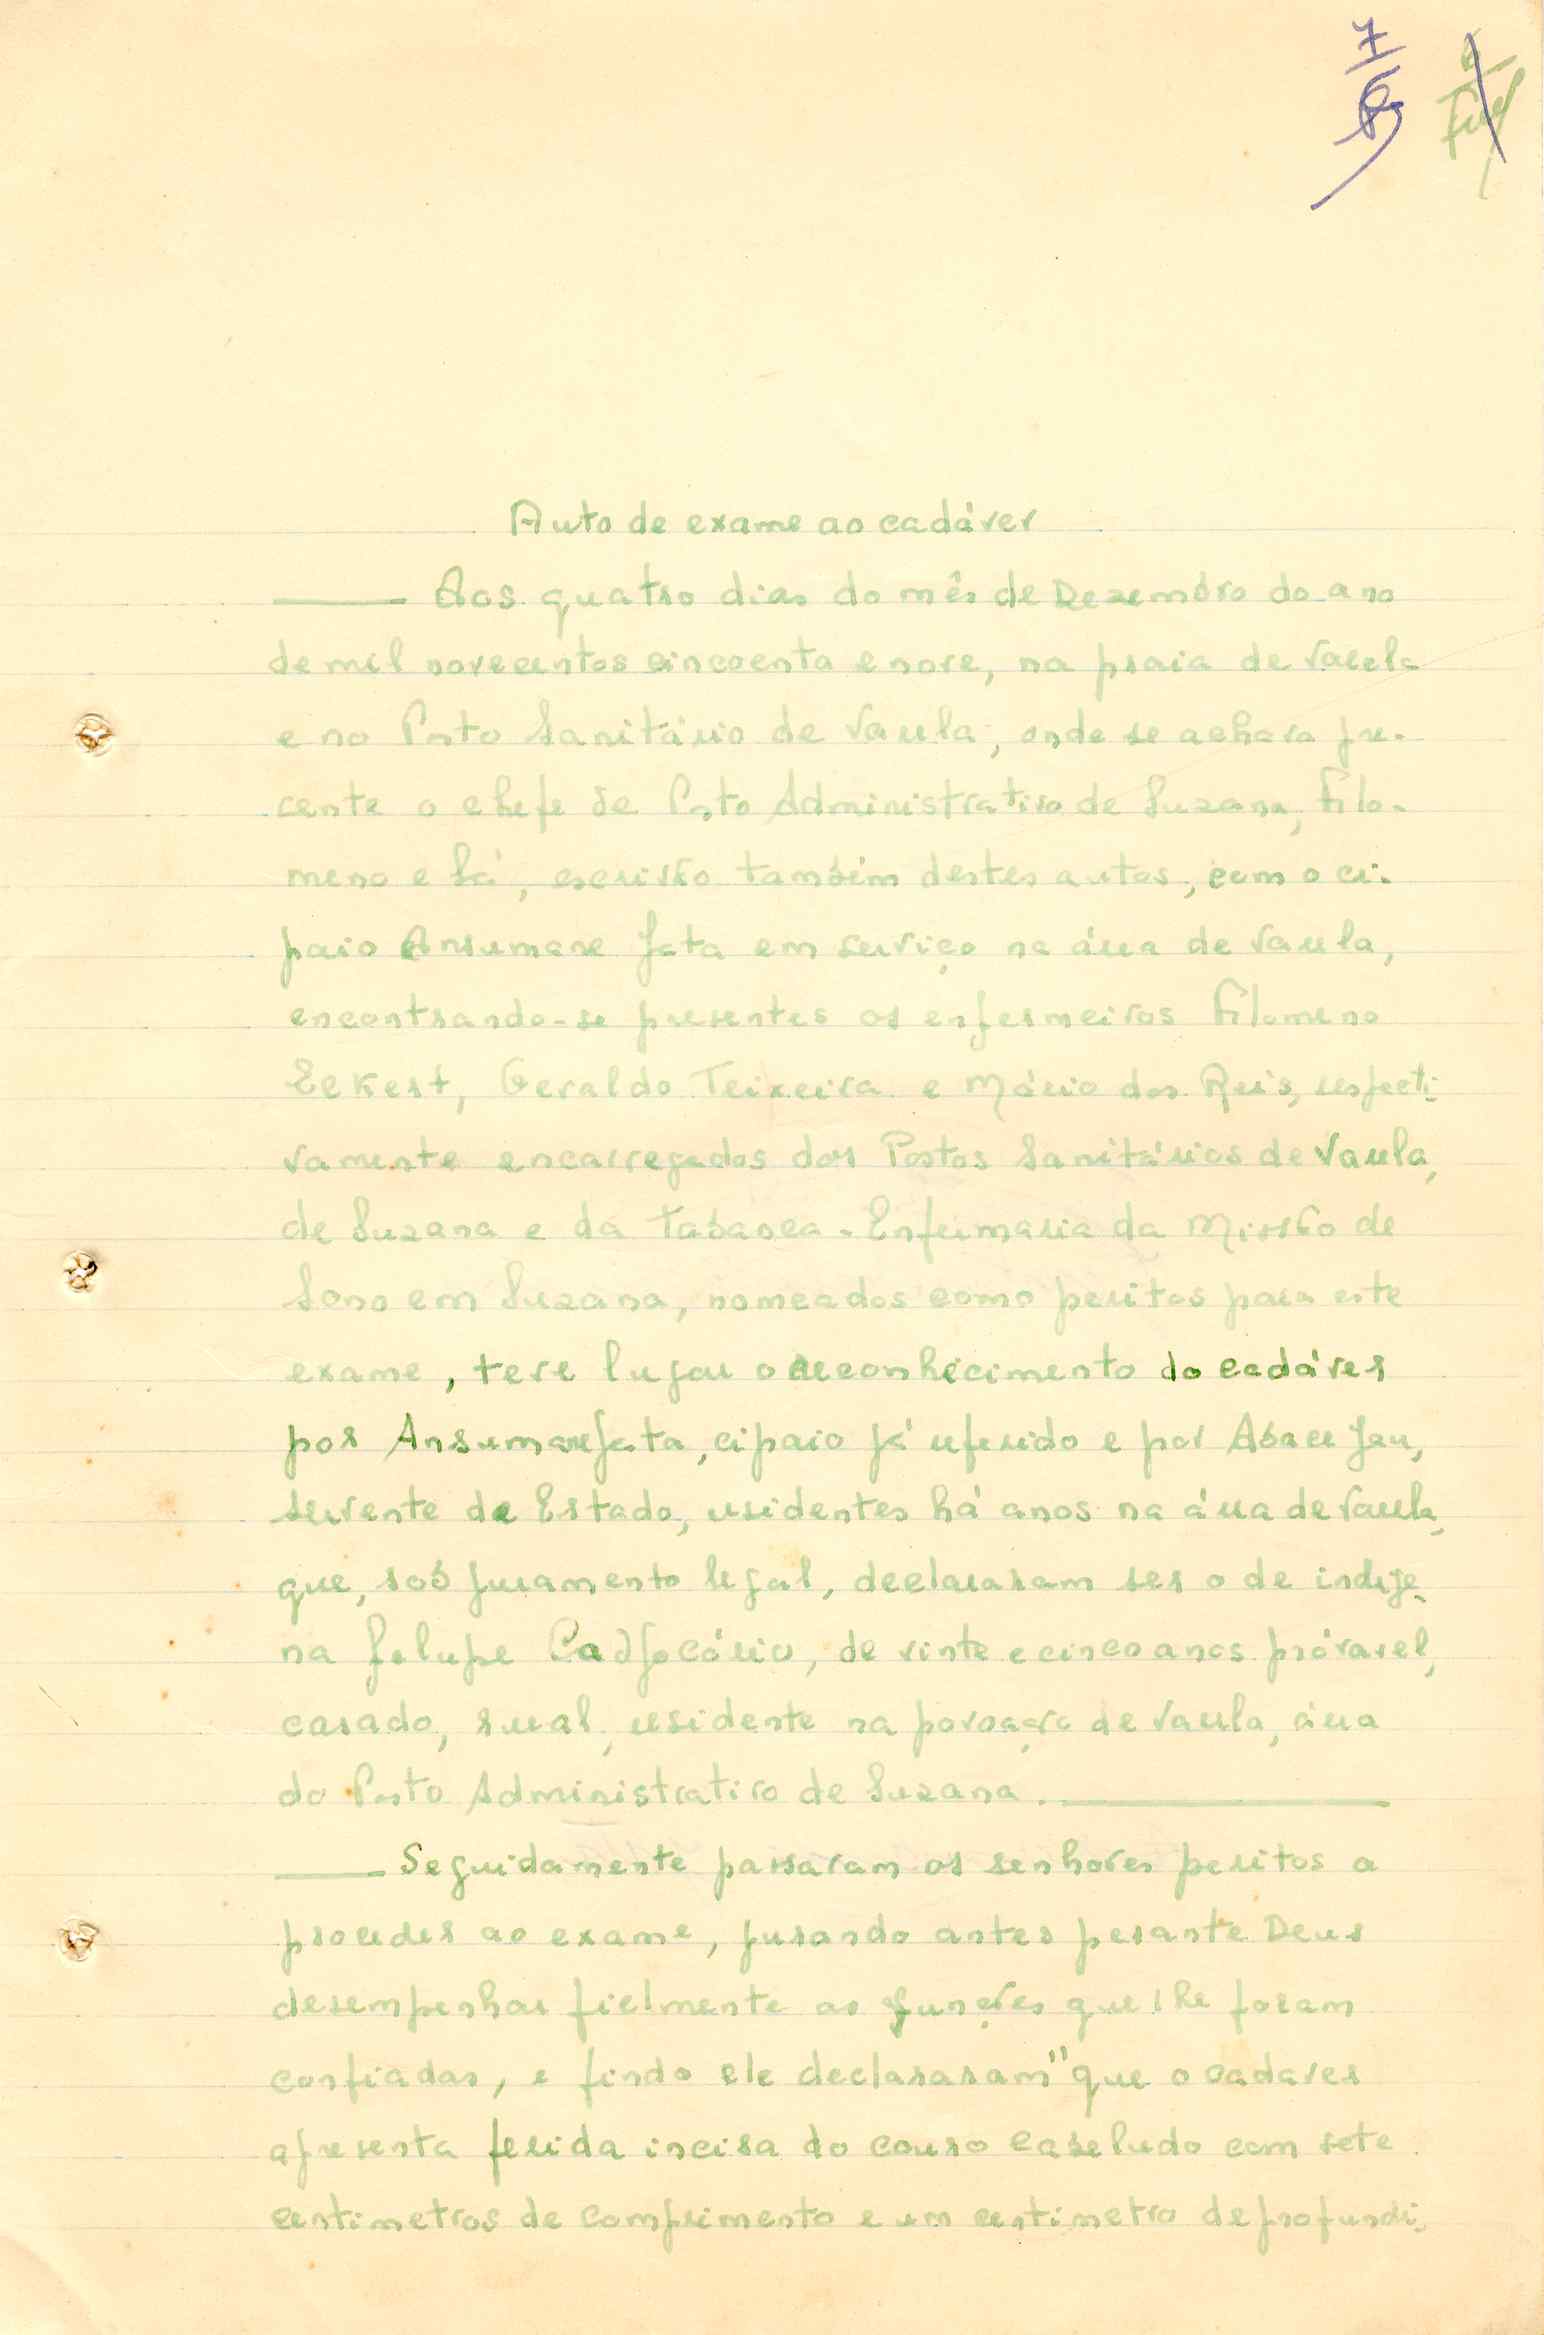 7
6
Auto de exame ao cadáver
Aos quatro dias do mês de Dezembro do ano
de mil novecentos cincoenta e nove, na praia de Varela
e no Posto Sanitário de Varela, onde se achava pre-
cente o chefe de Posto Administrativo de Suzana, Filo-
meno e Sá, escrivão também destes autos, com o ci-
paio Ansumane Jata em serviço na área de Varela,
encontrando-se presentes os enfermeiros Filomeno
Eckert, Geraldo Teixeira e Mário dos Reis, respecti-
vamente encarregados dos Postos Sanitários de Varela,
de Suzana e da Tabanca-Enfermaria da Missão de
Sono em Suzana, nomeados como peritos para este
exame, teve lugar o reconhecimento do cadáver
por Ansumane Jata, cipaio já referido e por
servente do Estado, residentes há anos na área de Varela,
que, sob juramento legal, declararam ser o de indige-
na felupe de vinte e cinco anos próvavel,
casado, rural, residente na povoação de Varela, área
do Posto Administrativo de Suzana.
Seguidamente passaram os senhores peritos a
proceder ao exame, jurando antes perante Deus
desempenhar fielmente as funções que lhe foram
confiadas, e findo ele declararam" que o cadaver
apresenta ferida incisa do couro cabeludo com sete
centimetros de comprimento e um centimetro de profundi-